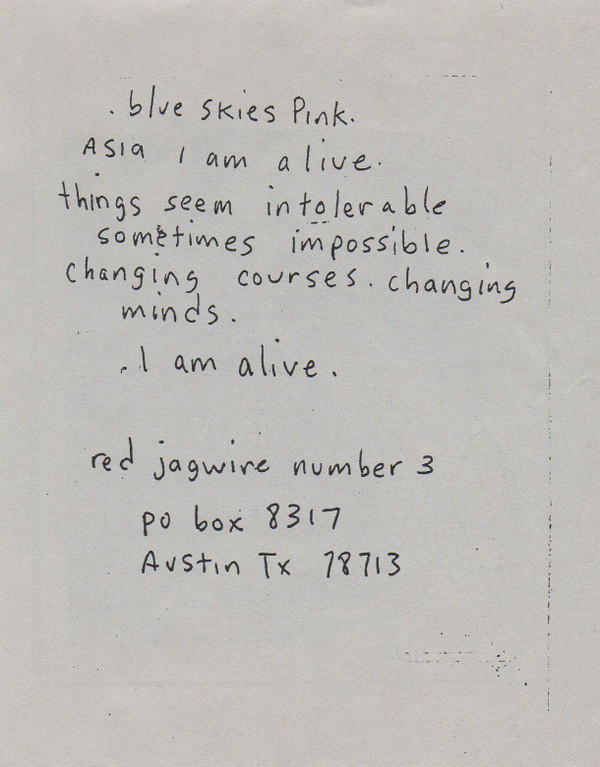 . blue skies Pink.
Asia I am alive.
things seem intolerable
sometimes impossible.
changing courses. changing
minds.
. I am alive.
red jagwire number 3
po box 8317
Austin Tx 78713